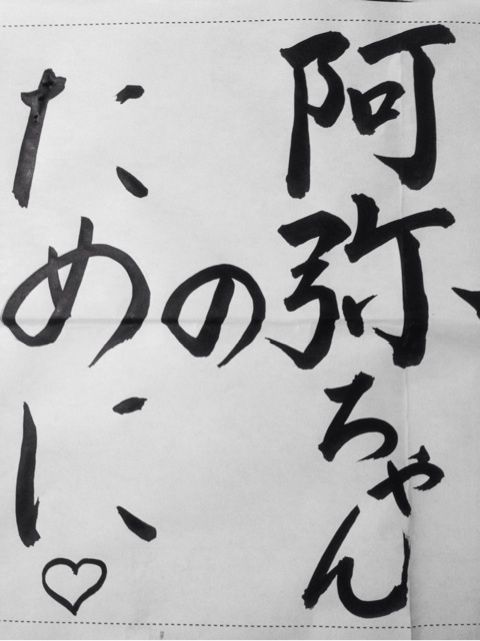 阿弥ちゃん
の
ために♡